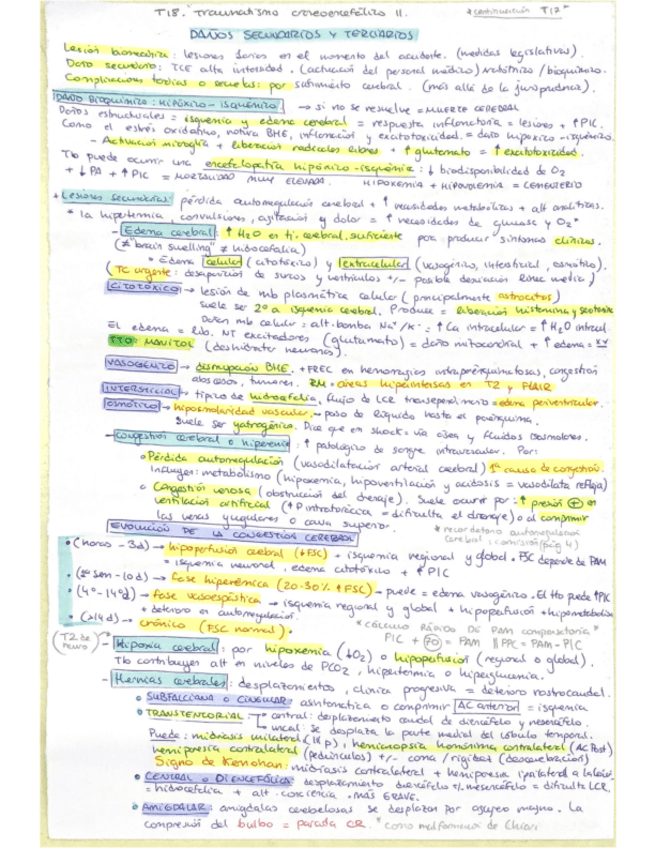 T18. Traumatismo craneoencefálico II. *continuación T17*
DAÑOS SECUNDARIOS Y TERCIARIOS
Lesión biomecánica: lesiones darias en el momento del accidente. (medidas legislativas).
Daño secundario: TCE alta intensidad. (actuación del personal médico) Metabólico/bioquímico.
Complicaciones tardías o secuelas: por sufrimiento cerebral. (más allá de la jurisprudencia).
DAÑO BIOQUÍMICO: HIPÓXICO-ISQUÉMICO → si no se resuelve = MUERTE CEREBRAL
Daños estructurales = isquemia y edema cerebral = respuesta inflamatoria = lesiones + ↑PIC.
Como el estrés oxidativo, rotura BHE, inflamación y excitotoxicidad = daño hipóxico-isquémico.
- Activación microglía + liberación radicales libres + ↑glutamato = ↑excitotoxicidad.
Tb puede ocurrir una encefalopatía hipóxico-isquémica: ↓ biodisponibilidad de O2
+ ↓PA + ↑PIC = MORTALIDAD MUY ELEVADA. HIPOXEMIA + HIPOVOLEMIA = CEMENTERIO
+ Lesiones secundarias: pérdida autorregulación cerebral + ↑ necesidades metabólicas + alt analíticas.
* la hipertermia, convulsiones, agitación y dolor = ↑ necesidades de glucosa y O2*
- Edema cerebral: ↑ H2O en tj. cerebral suficiente para producir síntomas clínicos.
(≠ "brain swelling" ≠ hidrocefalia)
* Edema celular (citotóxico) y extracelular (vasogénico, intersticial, osmótico).
(TC urgente: desaparición de surcos y ventrículos +/- posible desviación línea media)
CITOTÓXICO → lesión de mb plasmática celular (principalmente astrocitos)
Suele ser 2º a isquemia cerebral. Produce = liberación histamina y serotonina
Dañan mb celular: alt. bomba Na+/K+ = ↑Ca intracelular = ↑H2O intracel.
El edema = lib. NT excitadores (glutamato) = daño mitocondrial + ↑edema =
TTO: MANITOL (deshidrata neuronas).
VASOGÉNICO → disrupción BHE. + FREC en hemorragias intraparenquimatosas, congestión
abscesos, tumores. RM = áreas hiperintensas en T2 y FLAIR
INTERSTICIAL → típico de hidrocefalia, flujo de LCR transependimario = edema periventricular.
OSMÓTICO → hiposmolaridad vascular → paso de líquido hasta el parénquima.
Suele ser yatrogénico. Dice que en shock = vía ósea y fluidos isosmolares.
- Congestión cerebral o hiperemia: ↑ patológico de sangre intravascular. Por:
• Pérdida autorregulación (vasodilatación arterial cerebral) 1ª causa de congestión.
Influyen: metabolismo (hipoxemia, hipoventilación y acidosis = vasodilata refleja)
• Congestión venosa (obstrucción del drenaje). Suele ocurrir por: ↑ presión (+) en
ventilación artificial (↑P intratorácica = dificulta el drenaje) o al comprimir
las venas yugulares o cava superior. * recordatorio autorregulación
EVOLUCIÓN DE LA CONGESTIÓN CEREBRAL cerebral: comisión (pág 4)
• (horas - 3d) → hipoperfusión cerebral (↓FSC) + isquemia regional y global * FSC depende de PAM
= isquemia neuronal, edema citotóxico + ↑PIC
• (2ª sem - 10d) → fase hiperémica (20-30% ↑FSC) → puede = edema vasogénico. El Hto puede ↑PIC
• (4º - 14ºd) → fase vasoespástica → isquemia regional y global + hipoperfusión + hipometabolismo
+ deterioro en autorregulación.
• (>14d) → crónica (FSC normal). * CÁLCULO RÁPIDO DE PAM compensatoria*
PIC + 70 = PAM || PPC = PAM - PIC
(T2 de neuro) - Hipoxia cerebral: por hipoxemia (↓O2) o hipoperfusión (regional o global).
Tb contribuyen alt en niveles de PCO2, hipertermia o hiperglucemia.
- Hernias cerebrales: desplazamientos, clínica progresiva = deterioro rostrocaudal.
• SUBFALCIANA O CINGULAR: asintomática o comprimir AC anterior = isquemia
• TRANSTENTORIAL: central: desplazamiento caudal de diencéfalo y mesencéfalo.
uncal: se desplaza la parte medial del lóbulo temporal.
Puede: midriasis unilateral (III p), hemianopsia homónima contralateral (AC Post)
hemiparesia contralateral (pedúnculos) +/- coma/rigidez (descerebración)
Signo de Kernohan: midriasis contralateral + hemiparesia ipsilateral a la lesión.
• CENTRAL O DIENCEFÁLICA: desplazamiento diencéfalo +/- mesencéfalo = dificulta LCR.
= hidrocefalia + alt. conciencia. MÁS GRAVE.
• AMIGDALAR: amígdalas cerebelosas se desplazan por agujero magno. La
compresión del bulbo = parada CR. * como malformación de Chiari